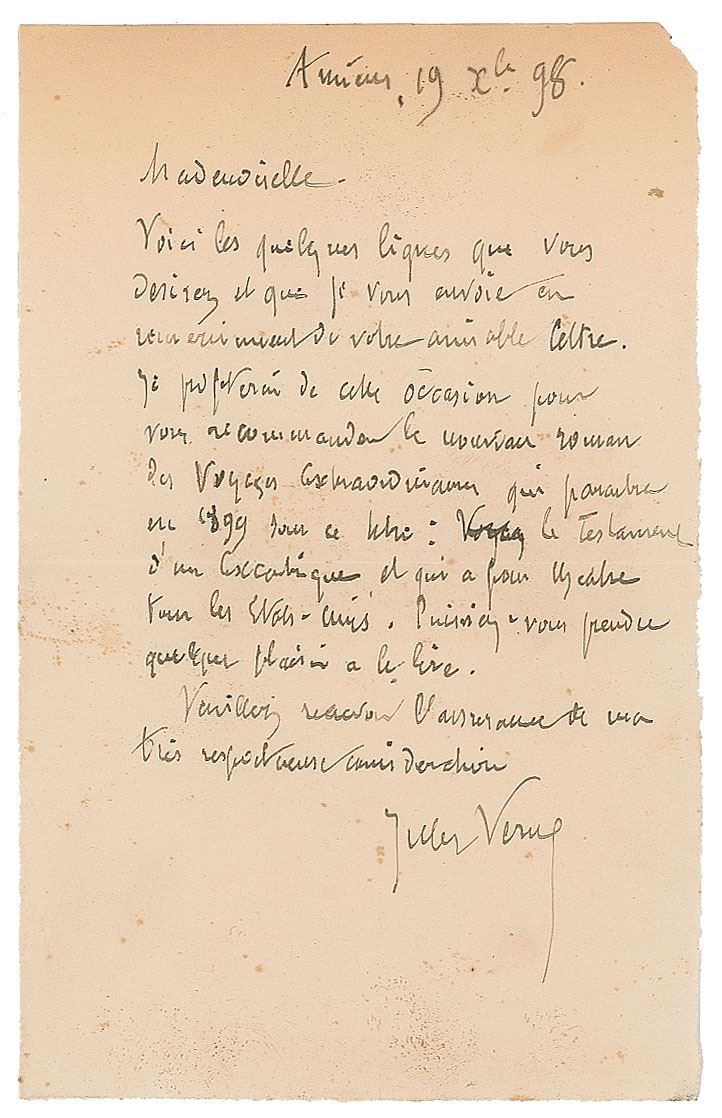 Amiens, 19 Xbe 98.
Mademoiselle.
Voici les quelques lignes que vous
desirez et que je vous envoie en
remerciement de votre aimable lettre.
Je profiterai de cette occasion pour
vous recommander le nouveau roman
des Voyages Extraordinaires qui paraitra
en 1899 sous ce titre : le Testament
d'un Excentrique, et qui a pour theatre
tous les Etats-Unis. Puissiez-vous prendre
quelque plaisir a le lire.
Veuillez recevoir l'assurance de ma
très respectueuse consideration
Jules Verne